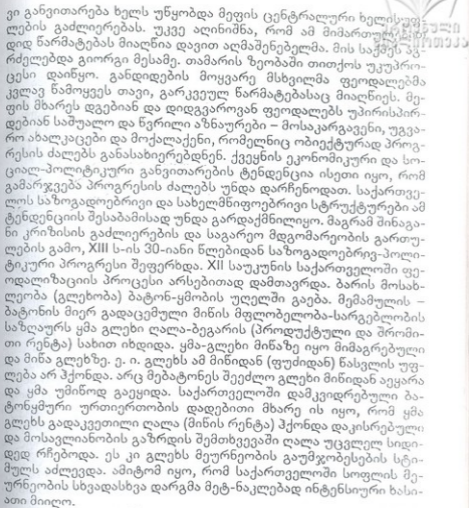 ვი განვითარება ხელს უწყობდა მეფის ცენტრალური ხელისუფ-
ლების გაძლიერებას. უკვე აღინიშნა, რომ ამ მიმართულებით
დიდ წარმატებას მიაღწია დავით აღმაშენებელმა. მის საქმეს აგ-
რძელებდა გიორგი მესამე. თამარის ზეობაში თითქოს უკუპრო-
ცესი დაიწყო. განდიდების მოყვარე მსხვილმა ფეოდალებმა
კვლავ წამოყვეს თავი, გარკვეულ წარმატებასაც მიაღწიეს. მე-
ფის მხარეს დგებიან და დიდგვაროვან ფეოდალებს უპირისპირ-
დებიან საშუალო და წვრილი აზნაურები – მოსაკარგავენი, უგვა-
რო ახალკაცები და მოქალაქენი, რომელნიც ობიექტურად პროგ-
რესის ძალებს განასახიერებდნენ. ქვეყნის ეკონომიკური და სო-
ციალ-პოლიტიკური განვითარების ტენდენცია ისეთი იყო, რომ
გამარჯვება პროგრესის ძალებს უნდა დარჩენოდათ. საქართვე-
ლოს საზოგადოებრივი და სახელმწიფოებრივი სტრუქტურები ამ
ტენდენციის შესაბამისად უნდა გარდაქმნილიყო. მაგრამ შინაგა-
ნი კრიზისის გაძლიერების და საგარეო მდგომარეობის გართუ-
ლების გამო, XIII ს-ის 30-იანი წლებიდან საზოგადოებრივ-პოლი-
ტიკური პროგრესი შეფერხდა. XII საუკუნის საქართველოში ფე-
ოდალიზაციის პროცესი არსებითად დამთავრდა. ბარის მოსახ-
ლეობა (გლეხობა) ბატონ-ყმობის უღელში გაება. მემამულის –
ბატონის მიერ გადაცემული მიწის მფლობელობა-სარგებლობის
საზღაურს ყმა გლეხი ღალა-ბეგარის (პროდუქტული და შრომი-
თი რენტა) სახით იხდიდა. ყმა-გლეხი მიწაზე იყო მიმაგრებული
და მიწა გლეხზე. ე. ი. გლეხს ამ მიწიდან (ფუძიდან) წასვლის უფ-
ლება არ ჰქონდა. არც მებატონეს შეეძლო გლეხი მიწიდან აეყარა
და ყმა უმიწოდ გაეყიდა. საქართველოში დამკვიდრებული ბა-
ტონყმური ურთიერთობის დადებითი მხარე ის იყო, რომ ყმა
გლეხს გადაკვეთილი ღალა (მიწის რენტა) ჰქონდა დაკისრებული
და მოსავლიანობის გაზრდის შემთხვევაში ღალა უცვლელ სიდი-
დედ რჩებოდა. ეს კი გლეხს მეურნეობის გაუმჯობესების სტი-
მულს აძლევდა. ამიტომ იყო, რომ საქართველოში სოფლის მე-
ურნეობის სხვადასხვა დარგმა მეტ-ნაკლებად ინტენსიური ხასი-
ათი მიიღო.